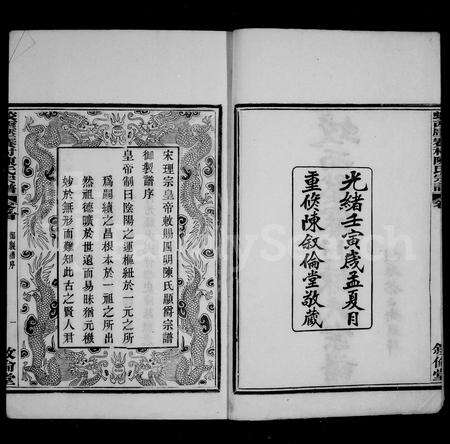 光緒壬寅歲孟夏月
重修陳敘倫堂敬藏
敘倫堂
宋理宗皇帝敕賜圓明陳氏顯衛宗譜
御製譜序
皇帝制曰陰陽之運樞紐於一元之所
為嗣續之昌根本於一祖之所出
然祖德曠於世遠而易昧猶元機
妙於無形而難知此古之賢人君
御製譜序
一
敘倫堂
FamilySearch